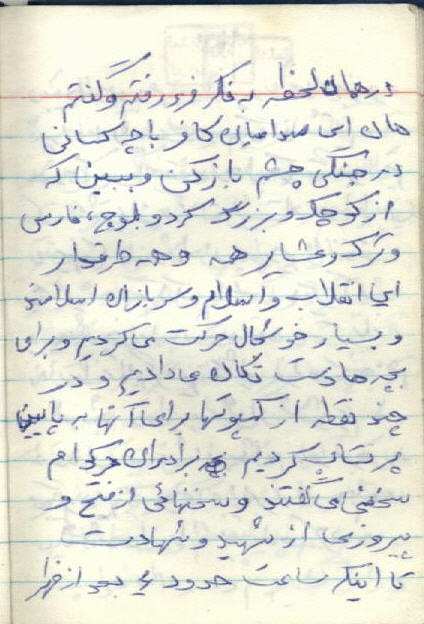 در همان لحظه به فکر فرو رفتم و گفتم
هان ای صدامیان کافر با چه کسانی
در جنگی چشم باز کن و ببین که
از کوچک و بزرگ کرد و بلوچ، فارس
و ترک و عشایر همه و همه طرفدار
این انقلاب و اسلام و سربازان اسلامند
و بسیار خوشحال حرکت می کردیم و برای
بچه ها دست تکان می دادیم و در
چند نقطه از کمپوتها برای آنها به پایین
پرتاب کردیم برادران هر کدام
سخنی می گفتند و سخنهائی از فتح و
پیروزی از شهید و شهادت
تا اینکه ساعت حدود ۴ بعد از ظهر